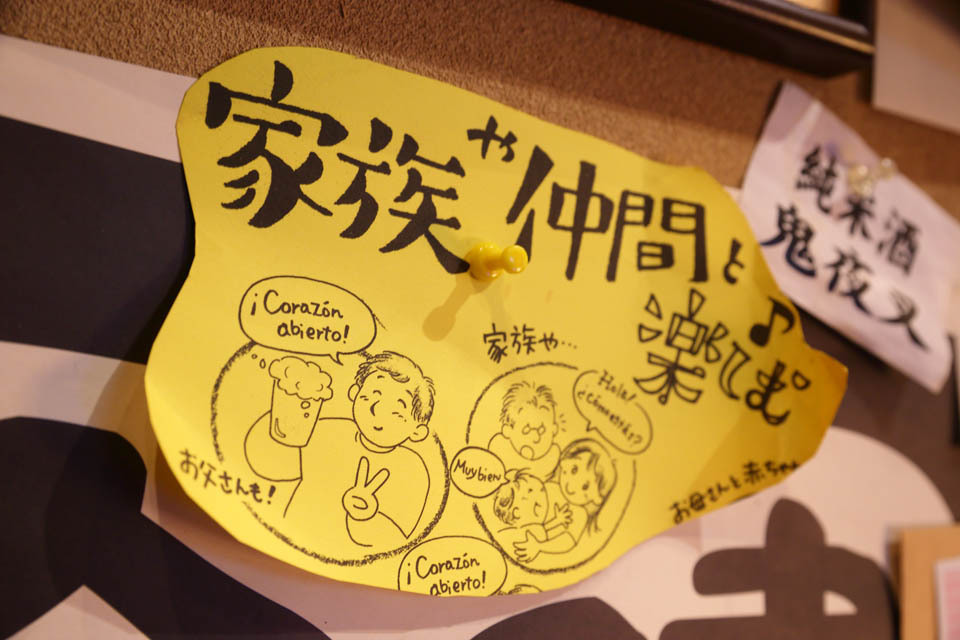 家族や仲間と
楽しむ♪
¡Corazón
abierto!
お父さんも!
家族や…
Hola!
¿Cómo estás?
Muy bien
お母さんと赤ちゃん
¡Corazón
abierto!
純米酒
鬼夜叉